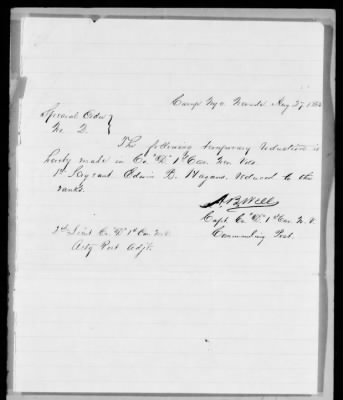 Camp Nye Nevada Aug 27, 186
Special Order
No 2.
The following temporary reduction is
hereby made in Co. "D" 1st Cav. Nev. Vols.
1st Sergeant Edwin B. Hazard reduced to the
ranks.
A. B. Wells
Capt. Co. "D" 1st Cav. N. V.
Commanding Post.
2d Lieut Co. "D" 1st Cav. N. V.
Actg Post Adjt.